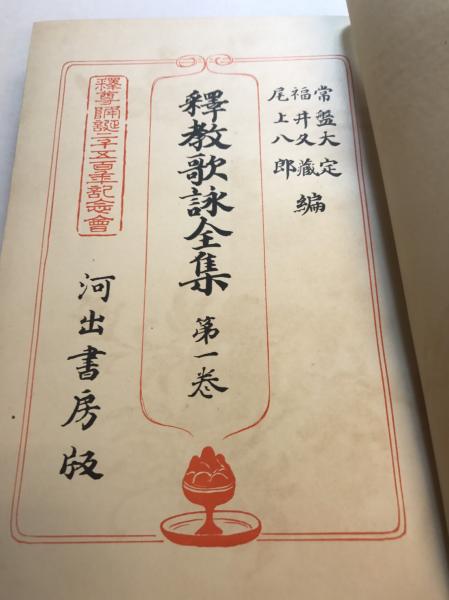 常盤大定
福井久藏
尾上八郎
編
釋教歌詠全集 第一卷
釋尊降誕二千五百年記念會
河出書房版